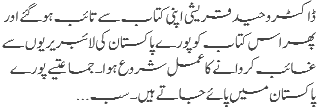 ڈاکٹر وحید قریشی اپنی کتاب سے تائب ہو گئے اور
پھر اس کتاب کو پورے پاکستان کی لائبریریوں سے
غائب کروانے کا عمل شروع ہوا۔ جماعتیے پورے
پاکستان میں پائے جاتے ہیں۔ سب...